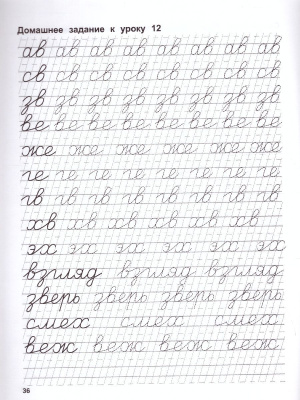 Домашнее задание к уроку 12
ав ав ав ав ав ав ав ав
св св св св св св св св
зв зв зв зв зв зв зв зв
ве ве ве ве ве ве ве ве
же же же же же же
ге ге ге ге ге ге ге ге
гв гв гв гв гв гв гв гв
хв хв хв хв хв хв хв
эх эх эх эх эх эх
взгляд взгляд взгляд
зверь зверь зверь зверь
смех смех смех
веж веж веж веж
36